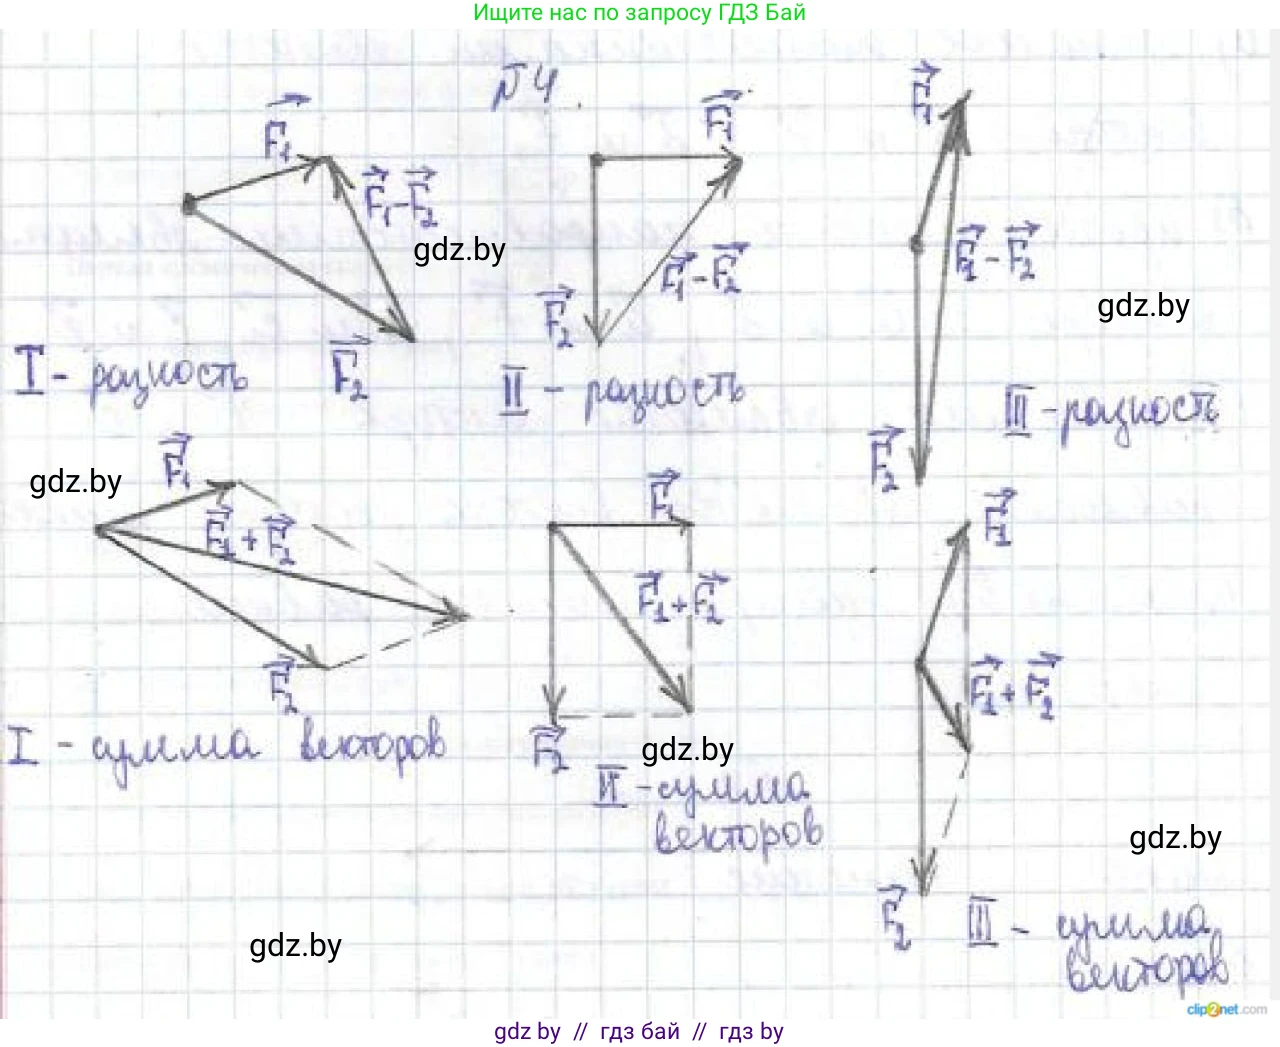 Ищите нас по запросу ГДЗ Бай
№4.
F₁
F₁-F₂
F₂
I - разность
gdz.by
F₁
F₁-F₂
F₂
II - разность
F₁
F₁-F₂
F₂
gdz.by
III - разность
gdz.by
F₁
F₁+F₂
F₂
I - сумма векторов
F₁
F₁+F₂
F₂
gdz.by
II - сумма
векторов
F₁
F₁+F₂
F₂
gdz.by
III - сумма
векторов
gdz.by
clip2net.com
gdz by // гдз бай // гдз by